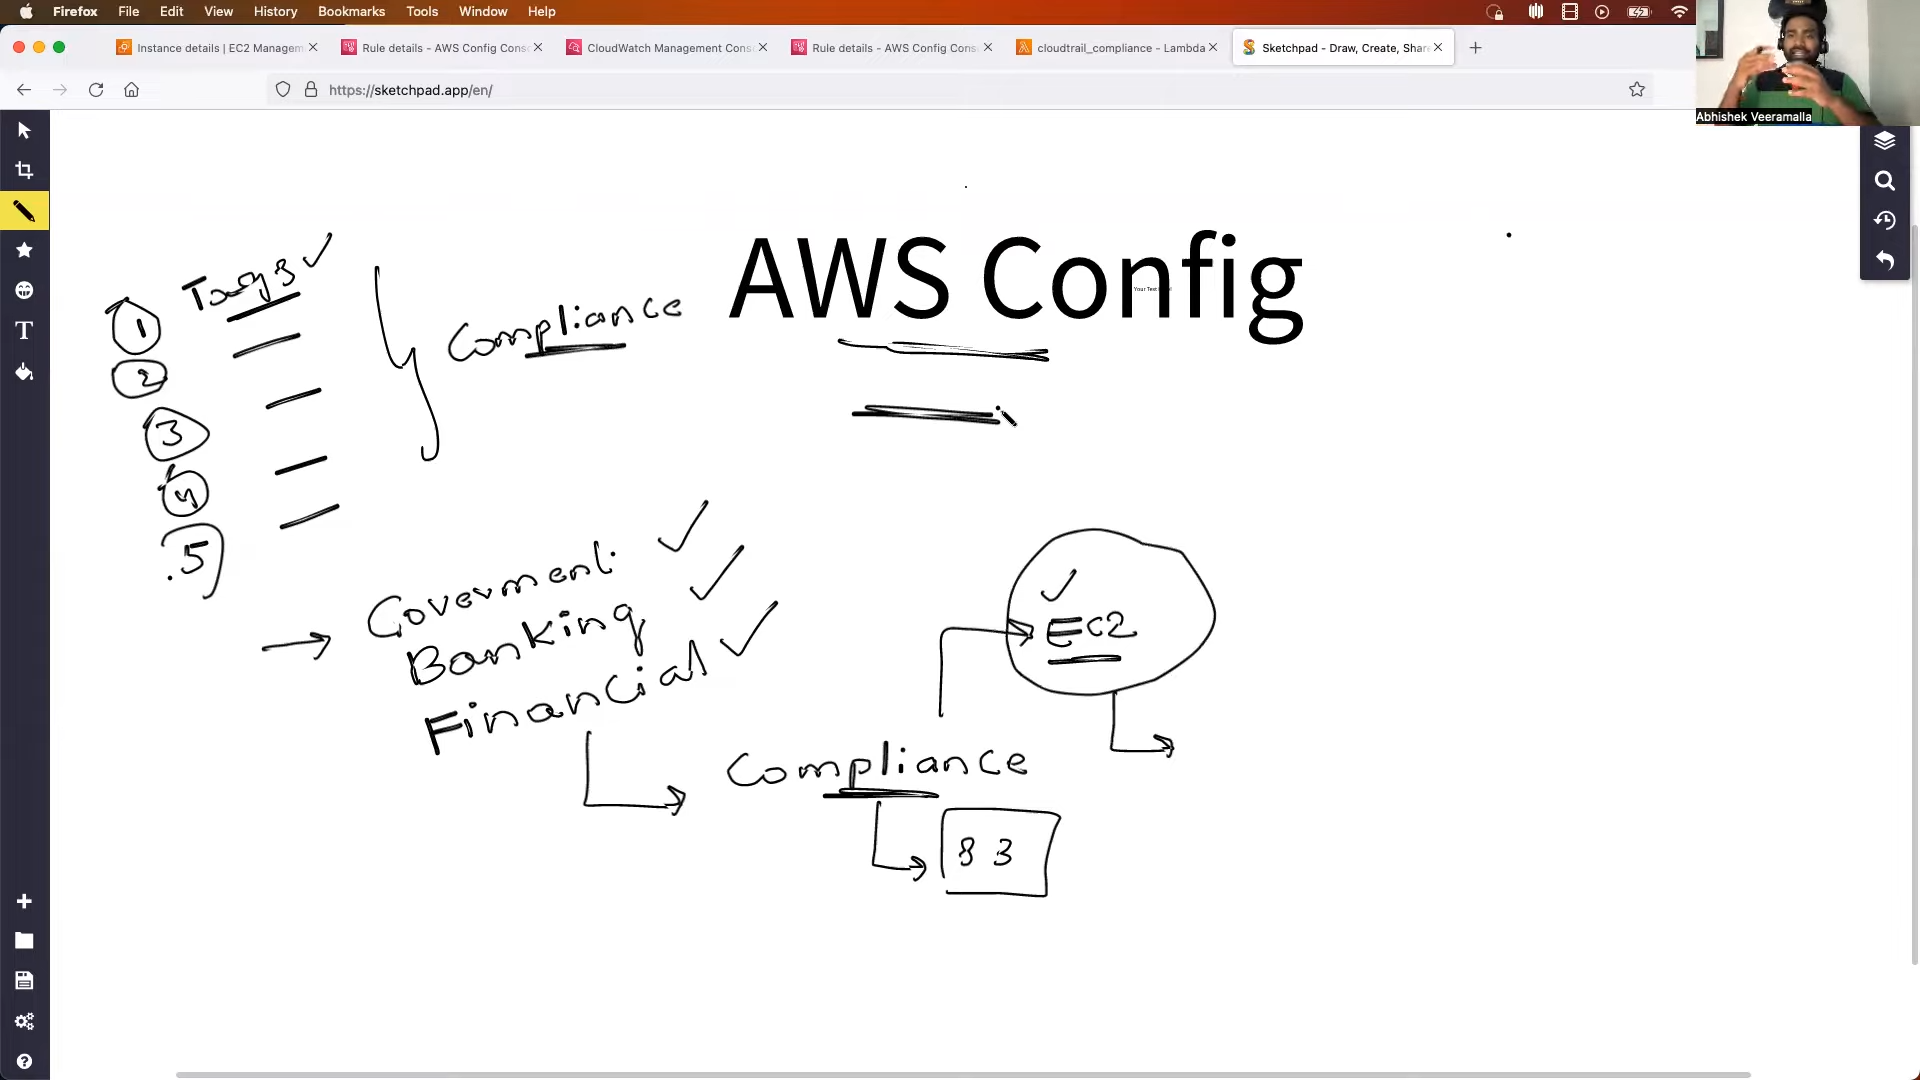 Firefox File Edit View History Bookmarks Tools Window Help
Instance details | EC2 Managem
Rule details - AWS Config Cons
CloudWatch Management Cons
Rule details - AWS Config Cons
cloudtrail_compliance - Lambda
Sketchpad - Draw, Create, Share
https://sketchpad.app/en/
Abhishek Veeramalla
AWS Config
Your Text
Tags
Compliance
1
2
3
4
5
Goverment
Banking
Financial
EC2
Compliance
83
T